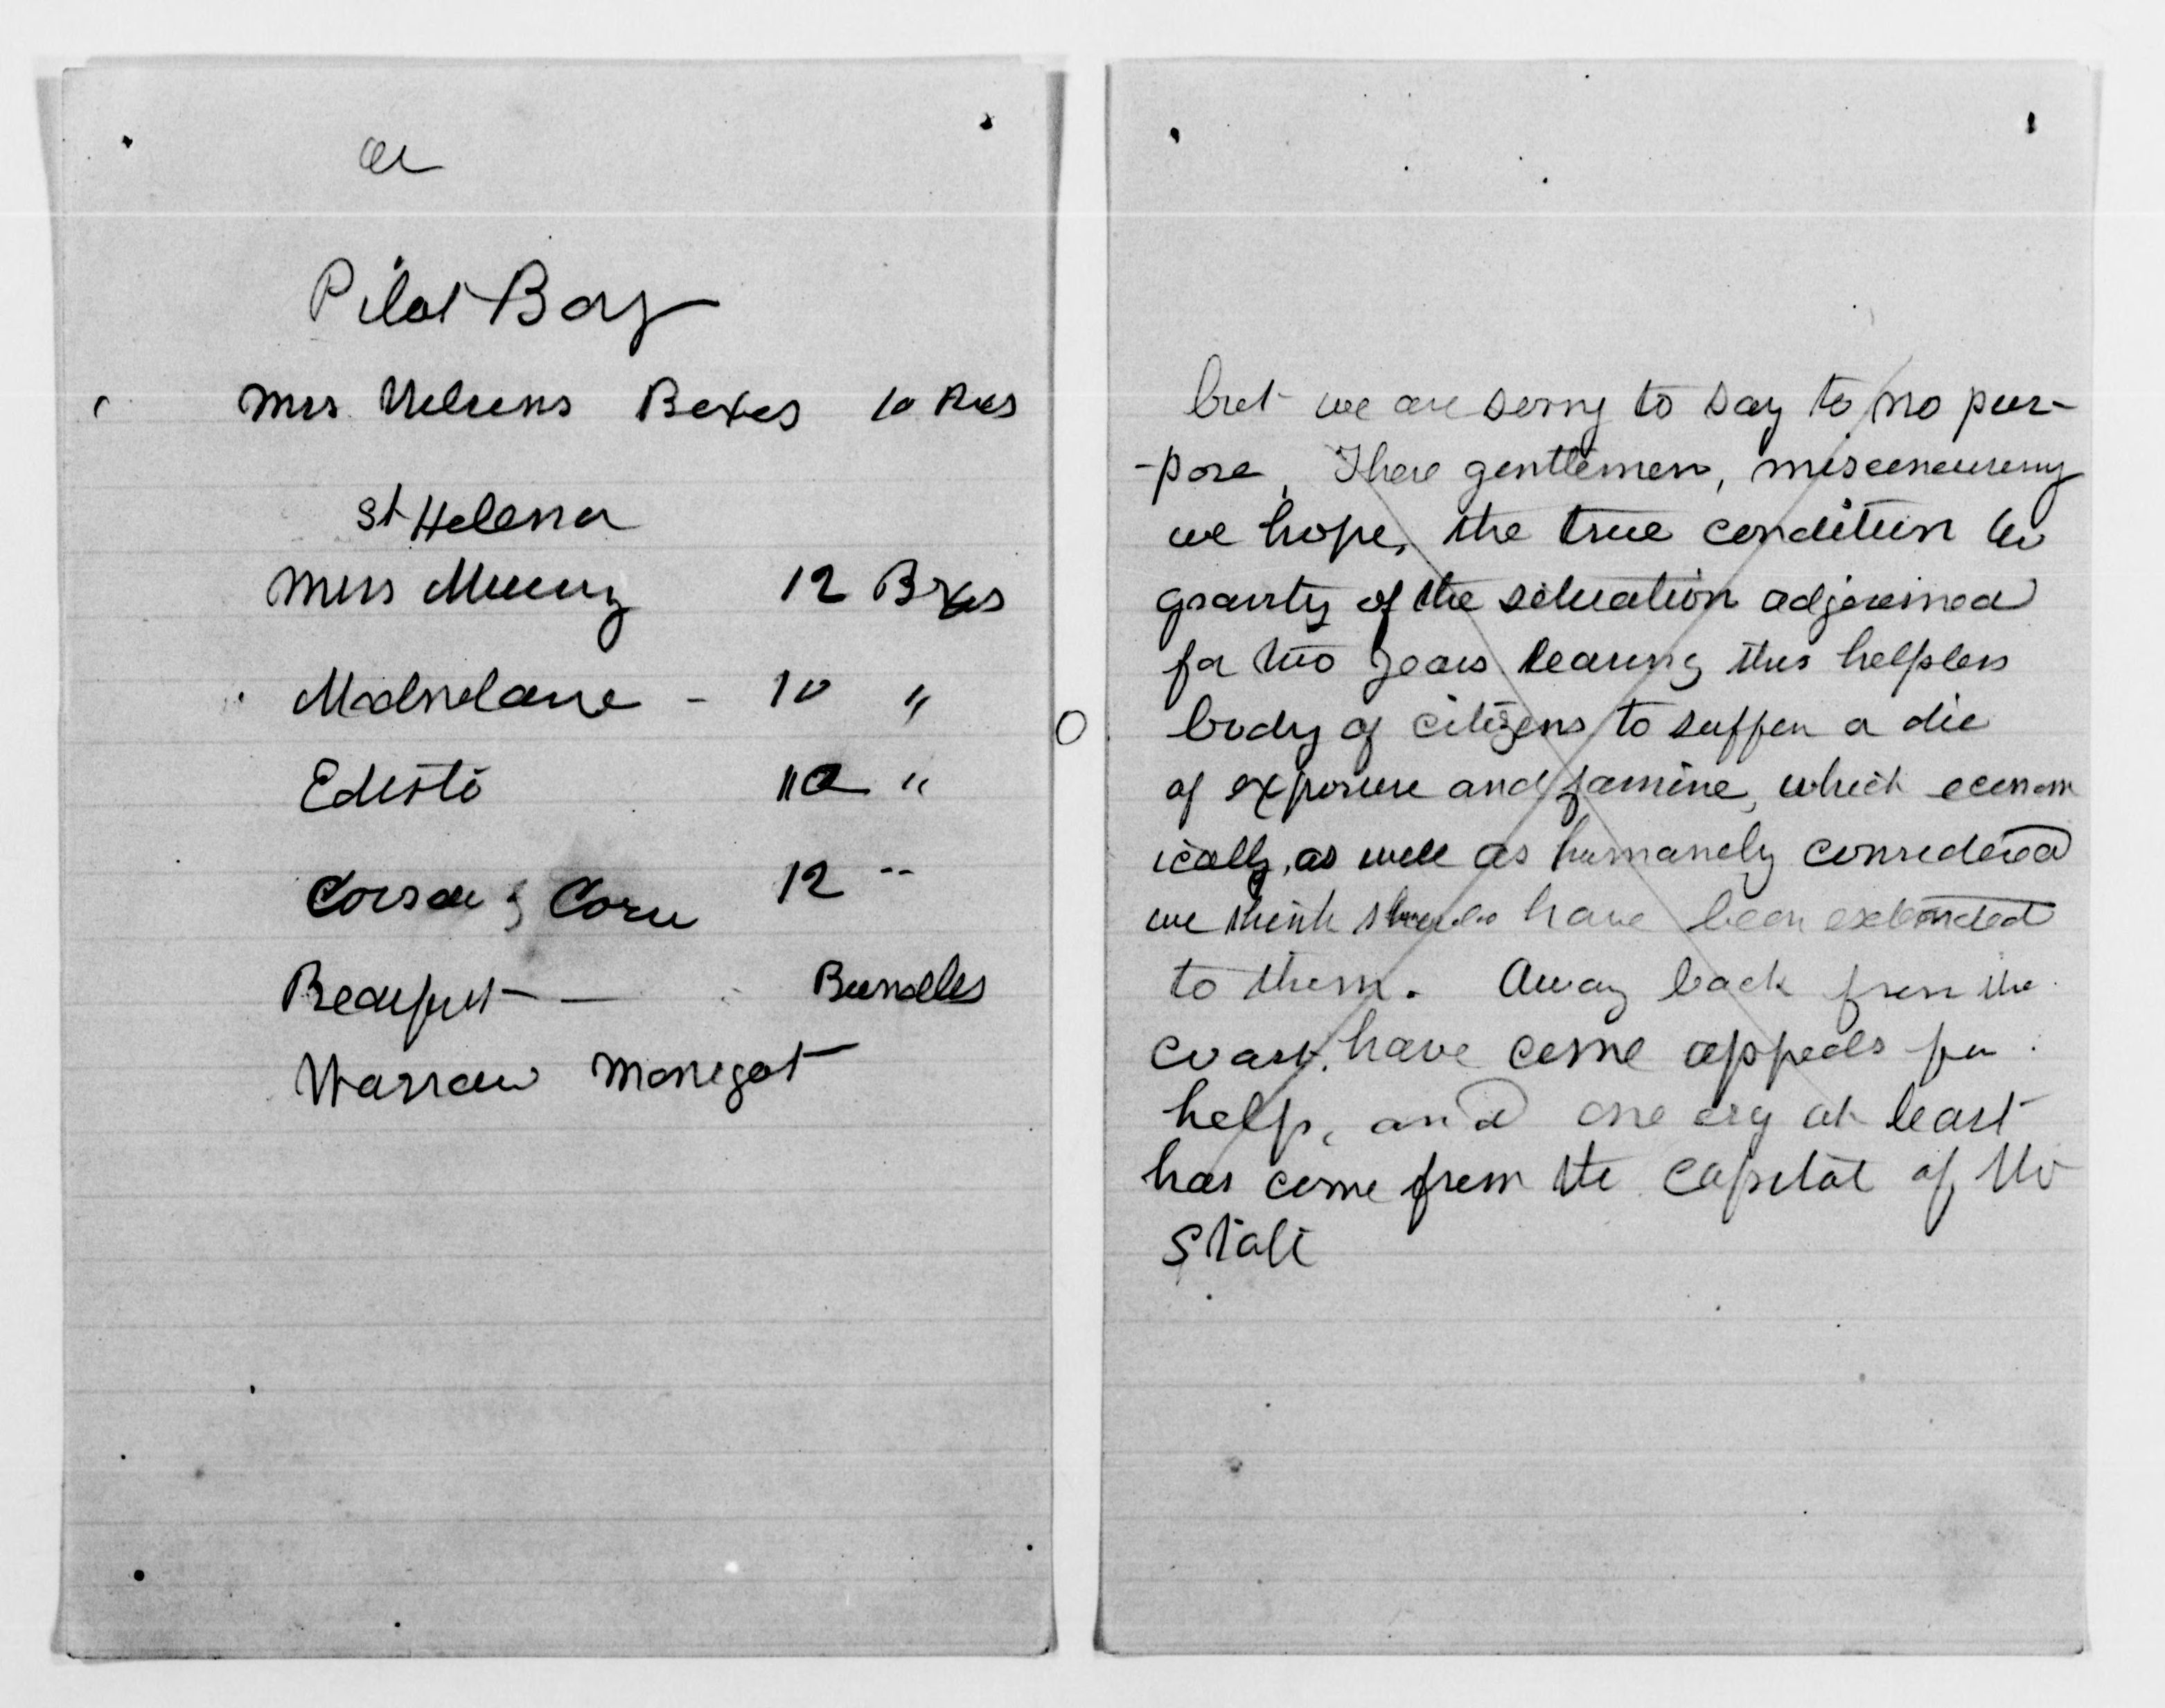 Pilot Boy
Mrs Boxes 10 Bxs
St Helena
Miss 12 Bxs
10 "
Edisto "
12 "
Beaufort — Bundles
Warsaw
but we are sorry to say to no pur-
-pose, These gentlemen, misconceiving
we hope, the true condition &
gravity of the situation adjourned
for two years leaving this helpless
body of citizens to suffer a die
of exposure and famine, which econom
ically, as well as humanely considered
we think should have been extended
to them. Away back from the
coast, have come appeals for
help, and one cry at least
has come from the Capital of the
State